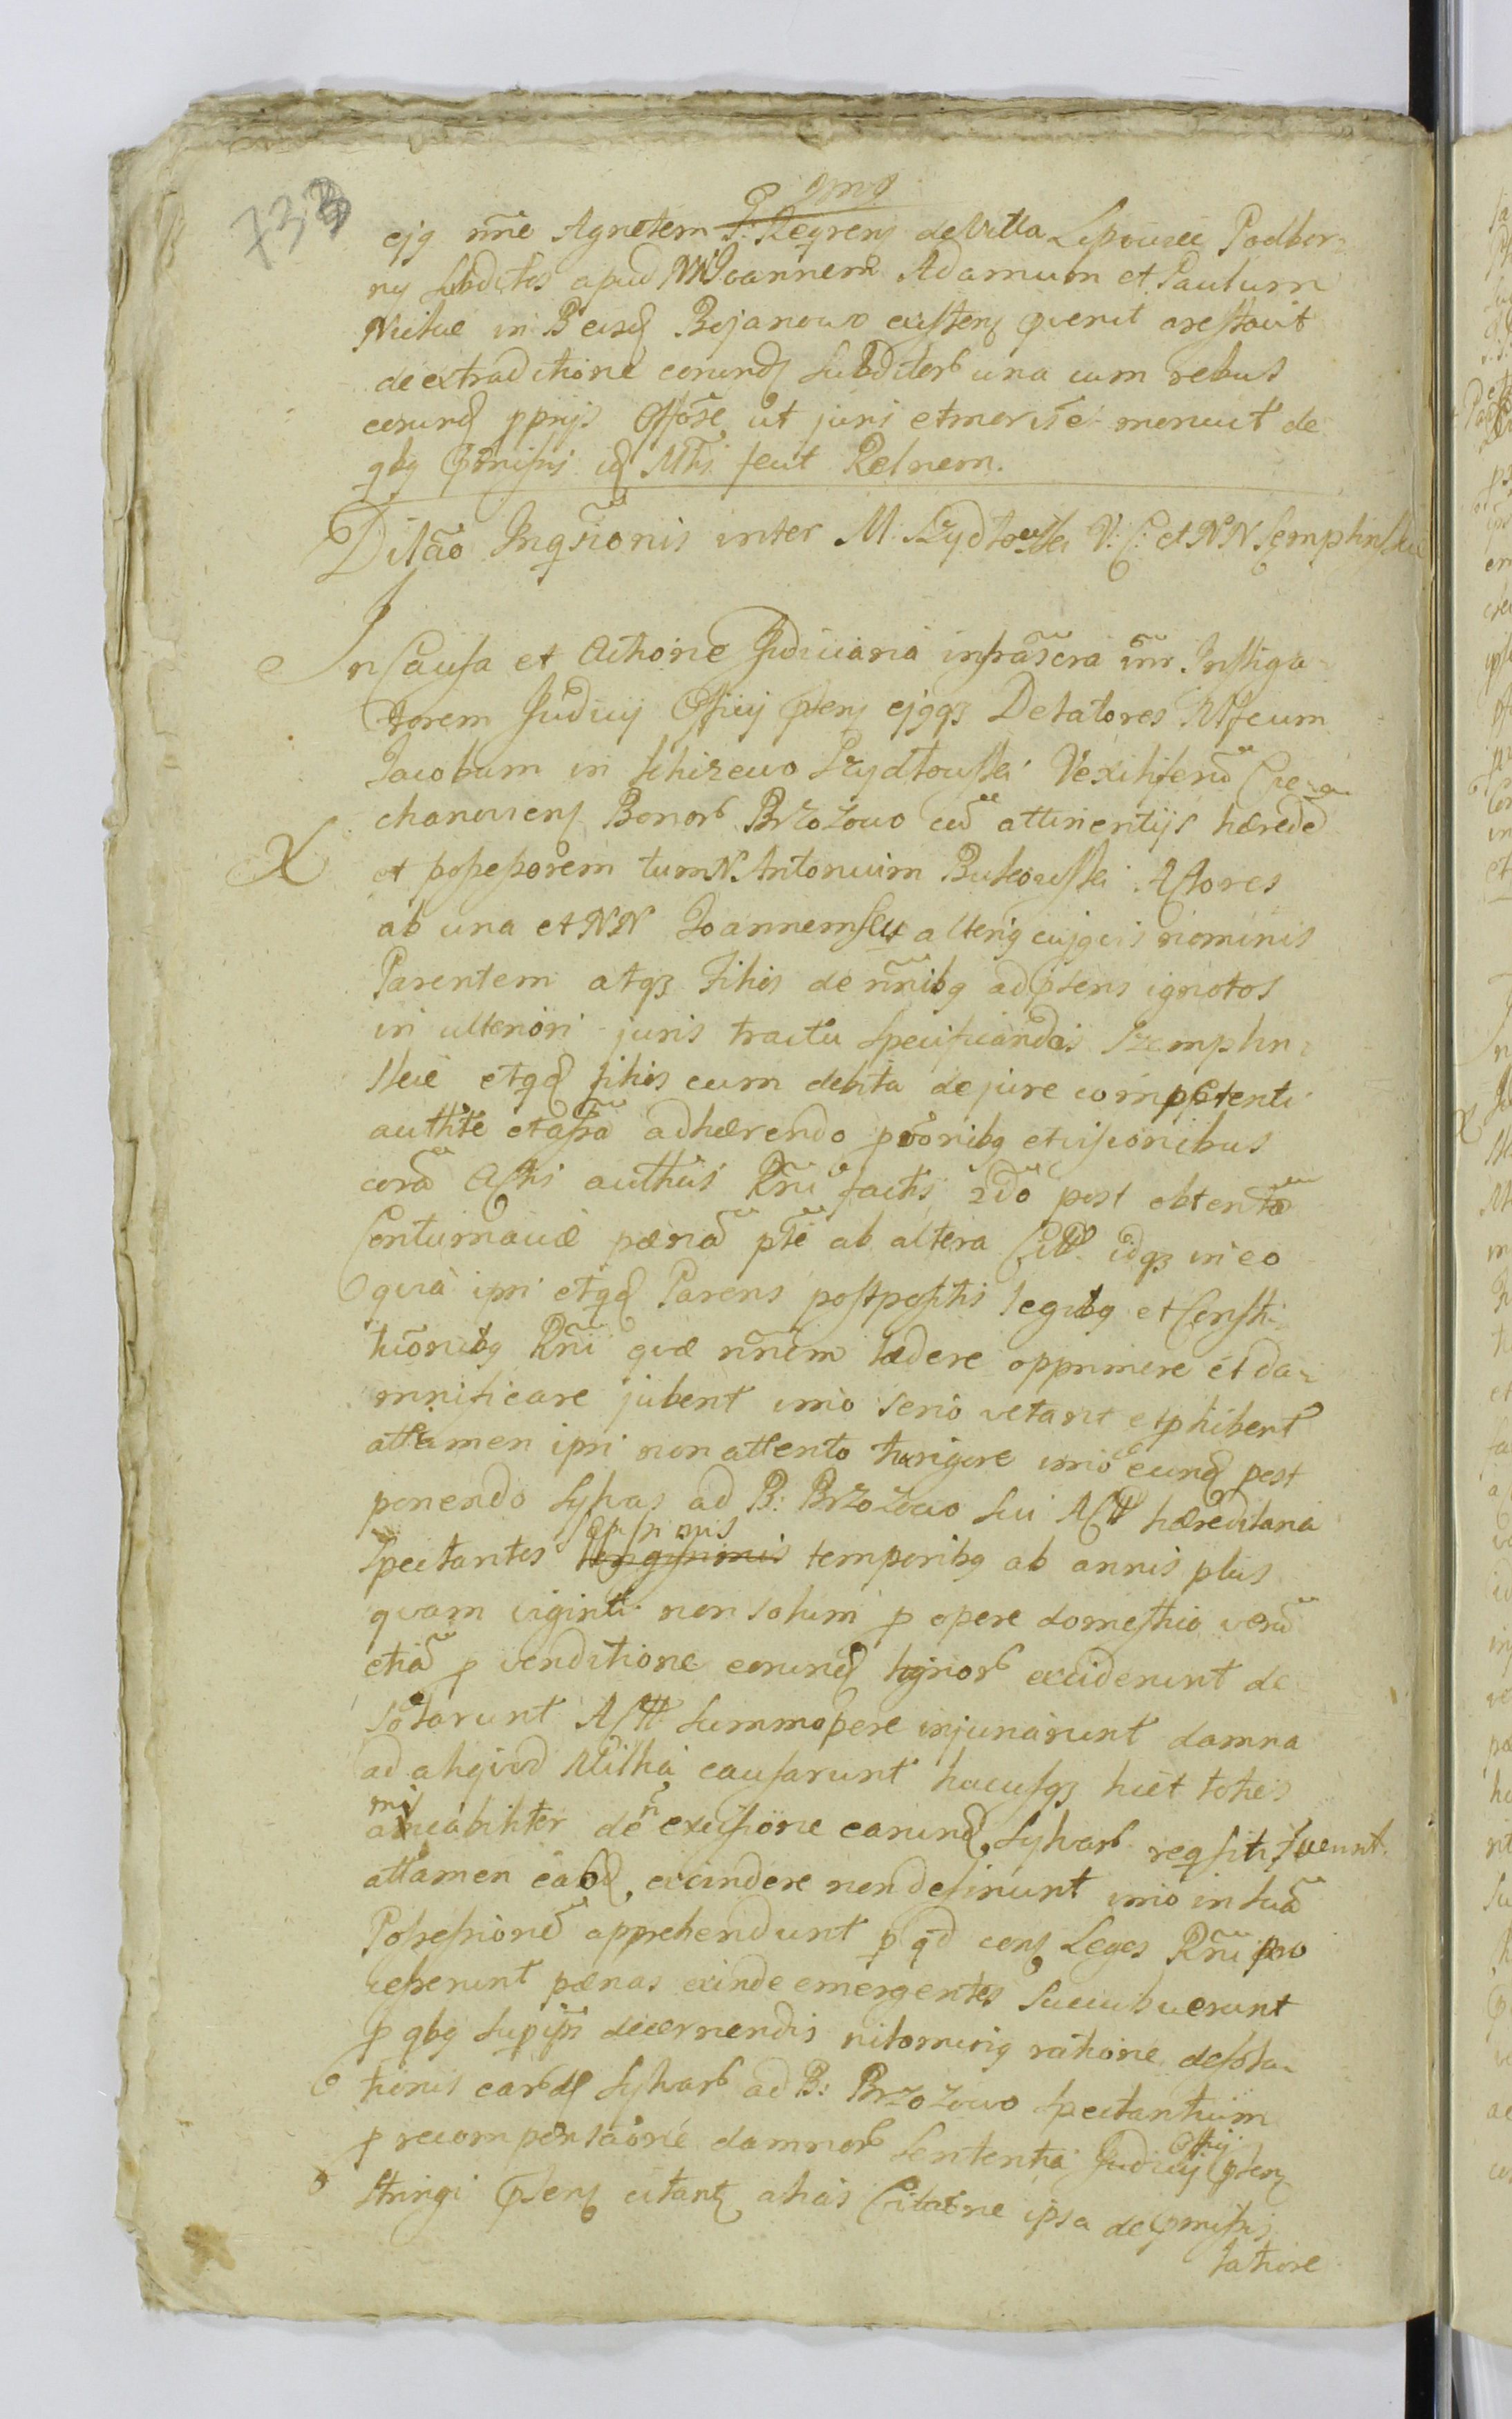 733
ejq nne Agnetem de Villa Podbor-
ny subditos apud NN Joannem Adamum et Paulum
in B eisd Bojanowo existen arestavit
de extraditione eorund subditor una cum rebus
eorund pprijs Offose ut juris et moris e monuit de
qbq pmissis id Mtis fecit Relnem.
Dilao Inqsionis inter M. Szydłowski V: C: et NN Szemplinskie
In Causa et Actione Judiciaria infrascra inr Instiga-
torem Judicij Officij psens ejqqz Delatores Mfcum
Jacobum in Szydłowski Vexilliferu Cie-
chanoviens Bonor Brzozowo cu attinentijs hærede
et possessorem tum N. Antonium Bukowski Actores
ab una et NN Joannem seu alteriq cujqvis nominis
Parentem atqz Filios de nnibq ad psens ignotos
in ulteriori juris tractu specificandos Szemplin-
skie etqd filios cum debita de jure competenti
authte et assa adhærendo pṍonibq et visionibus
cora Actis authcis Rni factis 2do post obtenta
Contumaciæ pæna pte ab altera Citt. idqz in eo
qvia ipsi etqd Parens postpositis legibq et Consti-
tuõnibq Rni qvæ nnem lædere opprimere et da-
mnificare jubent imo serio vetant et phibent
attamen ipsi non attento rigore imo eund post
ponendo sylvas ad B: Brzozowo sui Act hæreditaria
spectantes temporibq ab annis plus
qvam viginti non solum p opere domestico veru
etia p venditione eorund lignor exciderunt de
solarunt Actt. summopere injuriarunt damna
ad aliqvod Millia causarunt hucusqz licet toties
amicabiliter de n excisione earund sylvar reqsiti fuerunt.
attamen easd excindere non desinunt imo in sua
Possessione apprehendunt p qd cons Leges Rni
pænas exinde emergentes succubuerunt
p qbq supipsis decernendis nitominq ratione desola-
tionis eard sylvar ad B: Brzozowo spectantium
p recompensaone damnor sententia Judicij Offij psens
stringi psens citant alias Citatone ipsa de pmissis
latiore